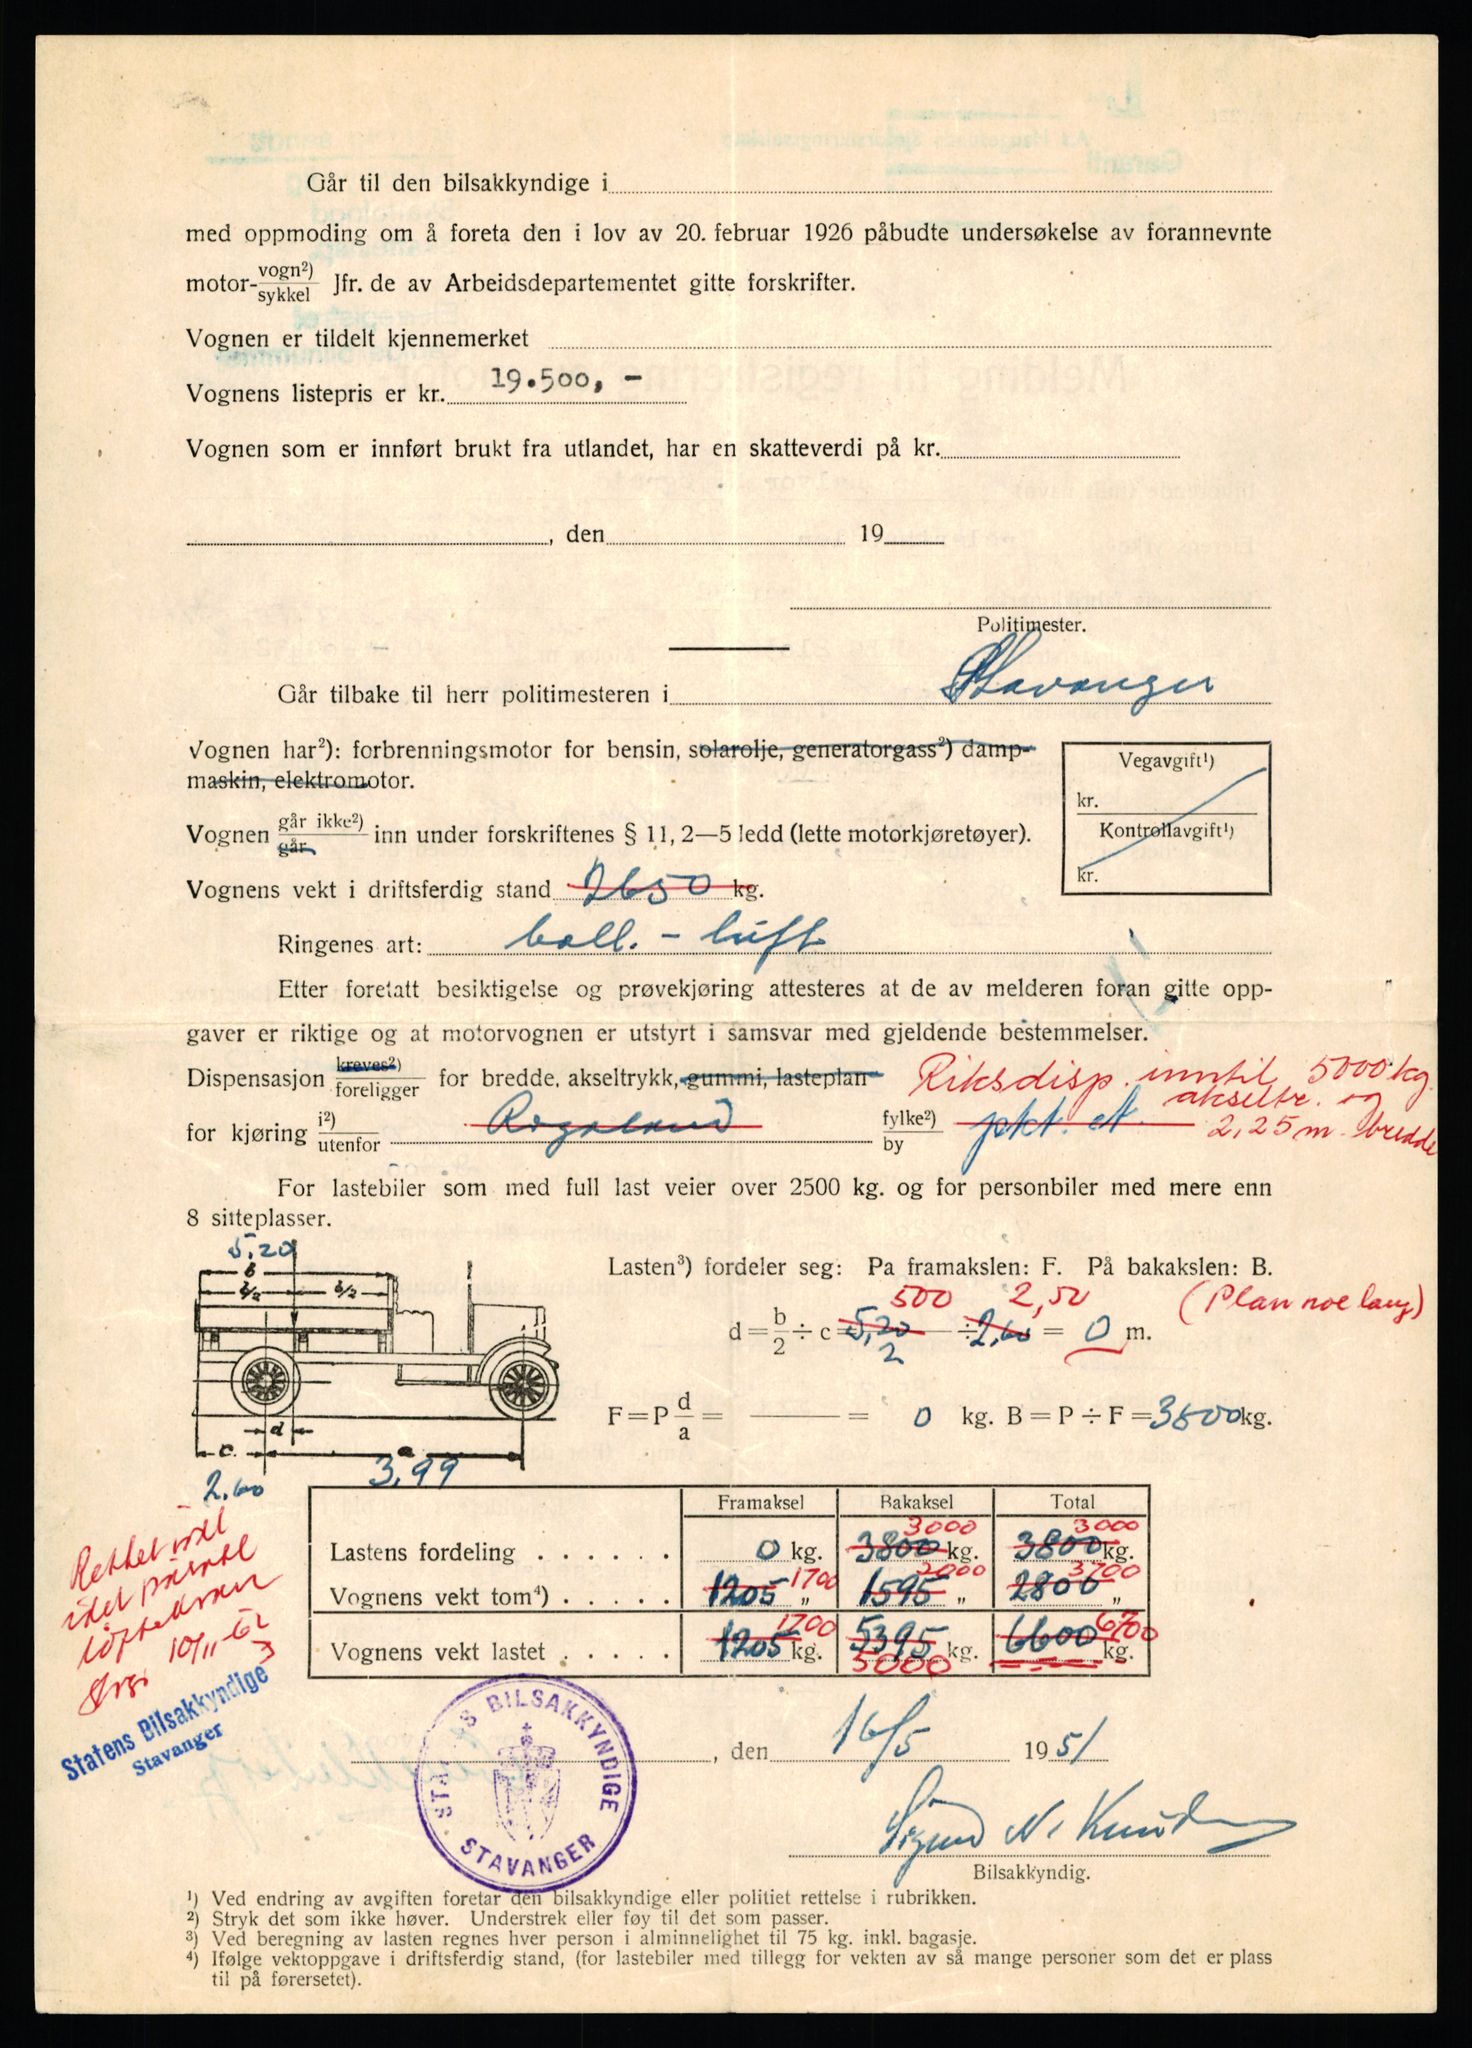 Går til den bilsakkyndige i
med oppmoding om å foreta den i lov av 20. februar 1926 påbudte undersøkelse av forannevnte
motor- vogn²) / sykkel Jfr. de av Arbeidsdepartementet gitte forskrifter.
Vognen er tildelt kjennemerket
Vognens listepris er kr. 19.500,-
Vognen som er innført brukt fra utlandet, har en skatteverdi på kr.
, den 19
Politimester.
Går tilbake til herr politimesteren i Stavanger
Vognen har²): forbrenningsmotor for bensin, solarolje, generatorgass²) damp-
maskin, elektromotor.
Vegavgift¹)
kr.
Kontrollavgift¹)
kr.
Vognen går ikke²) / går inn under forskriftenes § 11, 2—5 ledd (lette motorkjøretøyer).
Vognens vekt i driftsferdig stand 2650 kg.
Ringenes art: ball. - luft
Etter foretatt besiktigelse og prøvekjøring attesteres at de av melderen foran gitte opp-
gaver er riktige og at motorvognen er utstyrt i samsvar med gjeldende bestemmelser.
Dispensasjon kreves²) / foreligger for bredde, akseltrykk, gummi, lasteplan Riksdisp. inntil 5000 kg.
akseltr. og
for kjøring i²) / utenfor Rogaland fylke²) / by 2,25 m. bredde
For lastebiler som med full last veier over 2500 kg. og for personbiler med mere enn
8 sitteplasser.
5.20
b
b/2 b/2
Lasten³) fordeler seg: Pa framakslen: F. På bakakslen: B.
500 2,50 (Plan noe lang)
d = b/2 ÷ c = 5,20/2 ÷ 2,60 = 0 m.
F = P d/a = —— = 0 kg. B = P ÷ F = 3800 kg.
d
c. a
3,99
2.60
Framaksel Bakaksel Total
3000 3000
Lastens fordeling . . . . . . 0 kg. 3800 kg. 3800 kg.
1700 2000 3700
Vognens vekt tom⁴) . . . . . 1205 „ 1595 „ 2800 „
1700 6700
Vognens vekt lastet . . . . . 1205 kg. 5395 kg. 6600 kg.
5000
Rettet
10/11-62
Statens Bilsakkyndige
Stavanger
STATENS BILSAKKYNDIGE
STAVANGER
, den 16/5 1951
Sigurd N. Knud
Bilsakkyndig.
¹) Ved endring av avgiften foretar den bilsakkyndige eller politiet rettelse i rubrikken.
²) Stryk det som ikke høver. Understrek eller føy til det som passer.
³) Ved beregning av lasten regnes hver person i alminnelighet til 75 kg. inkl. bagasje.
⁴) Ifølge vektoppgave i driftsferdig stand, (for lastebiler med tillegg for vekten av så mange personer som det er plass
til på førersetet).